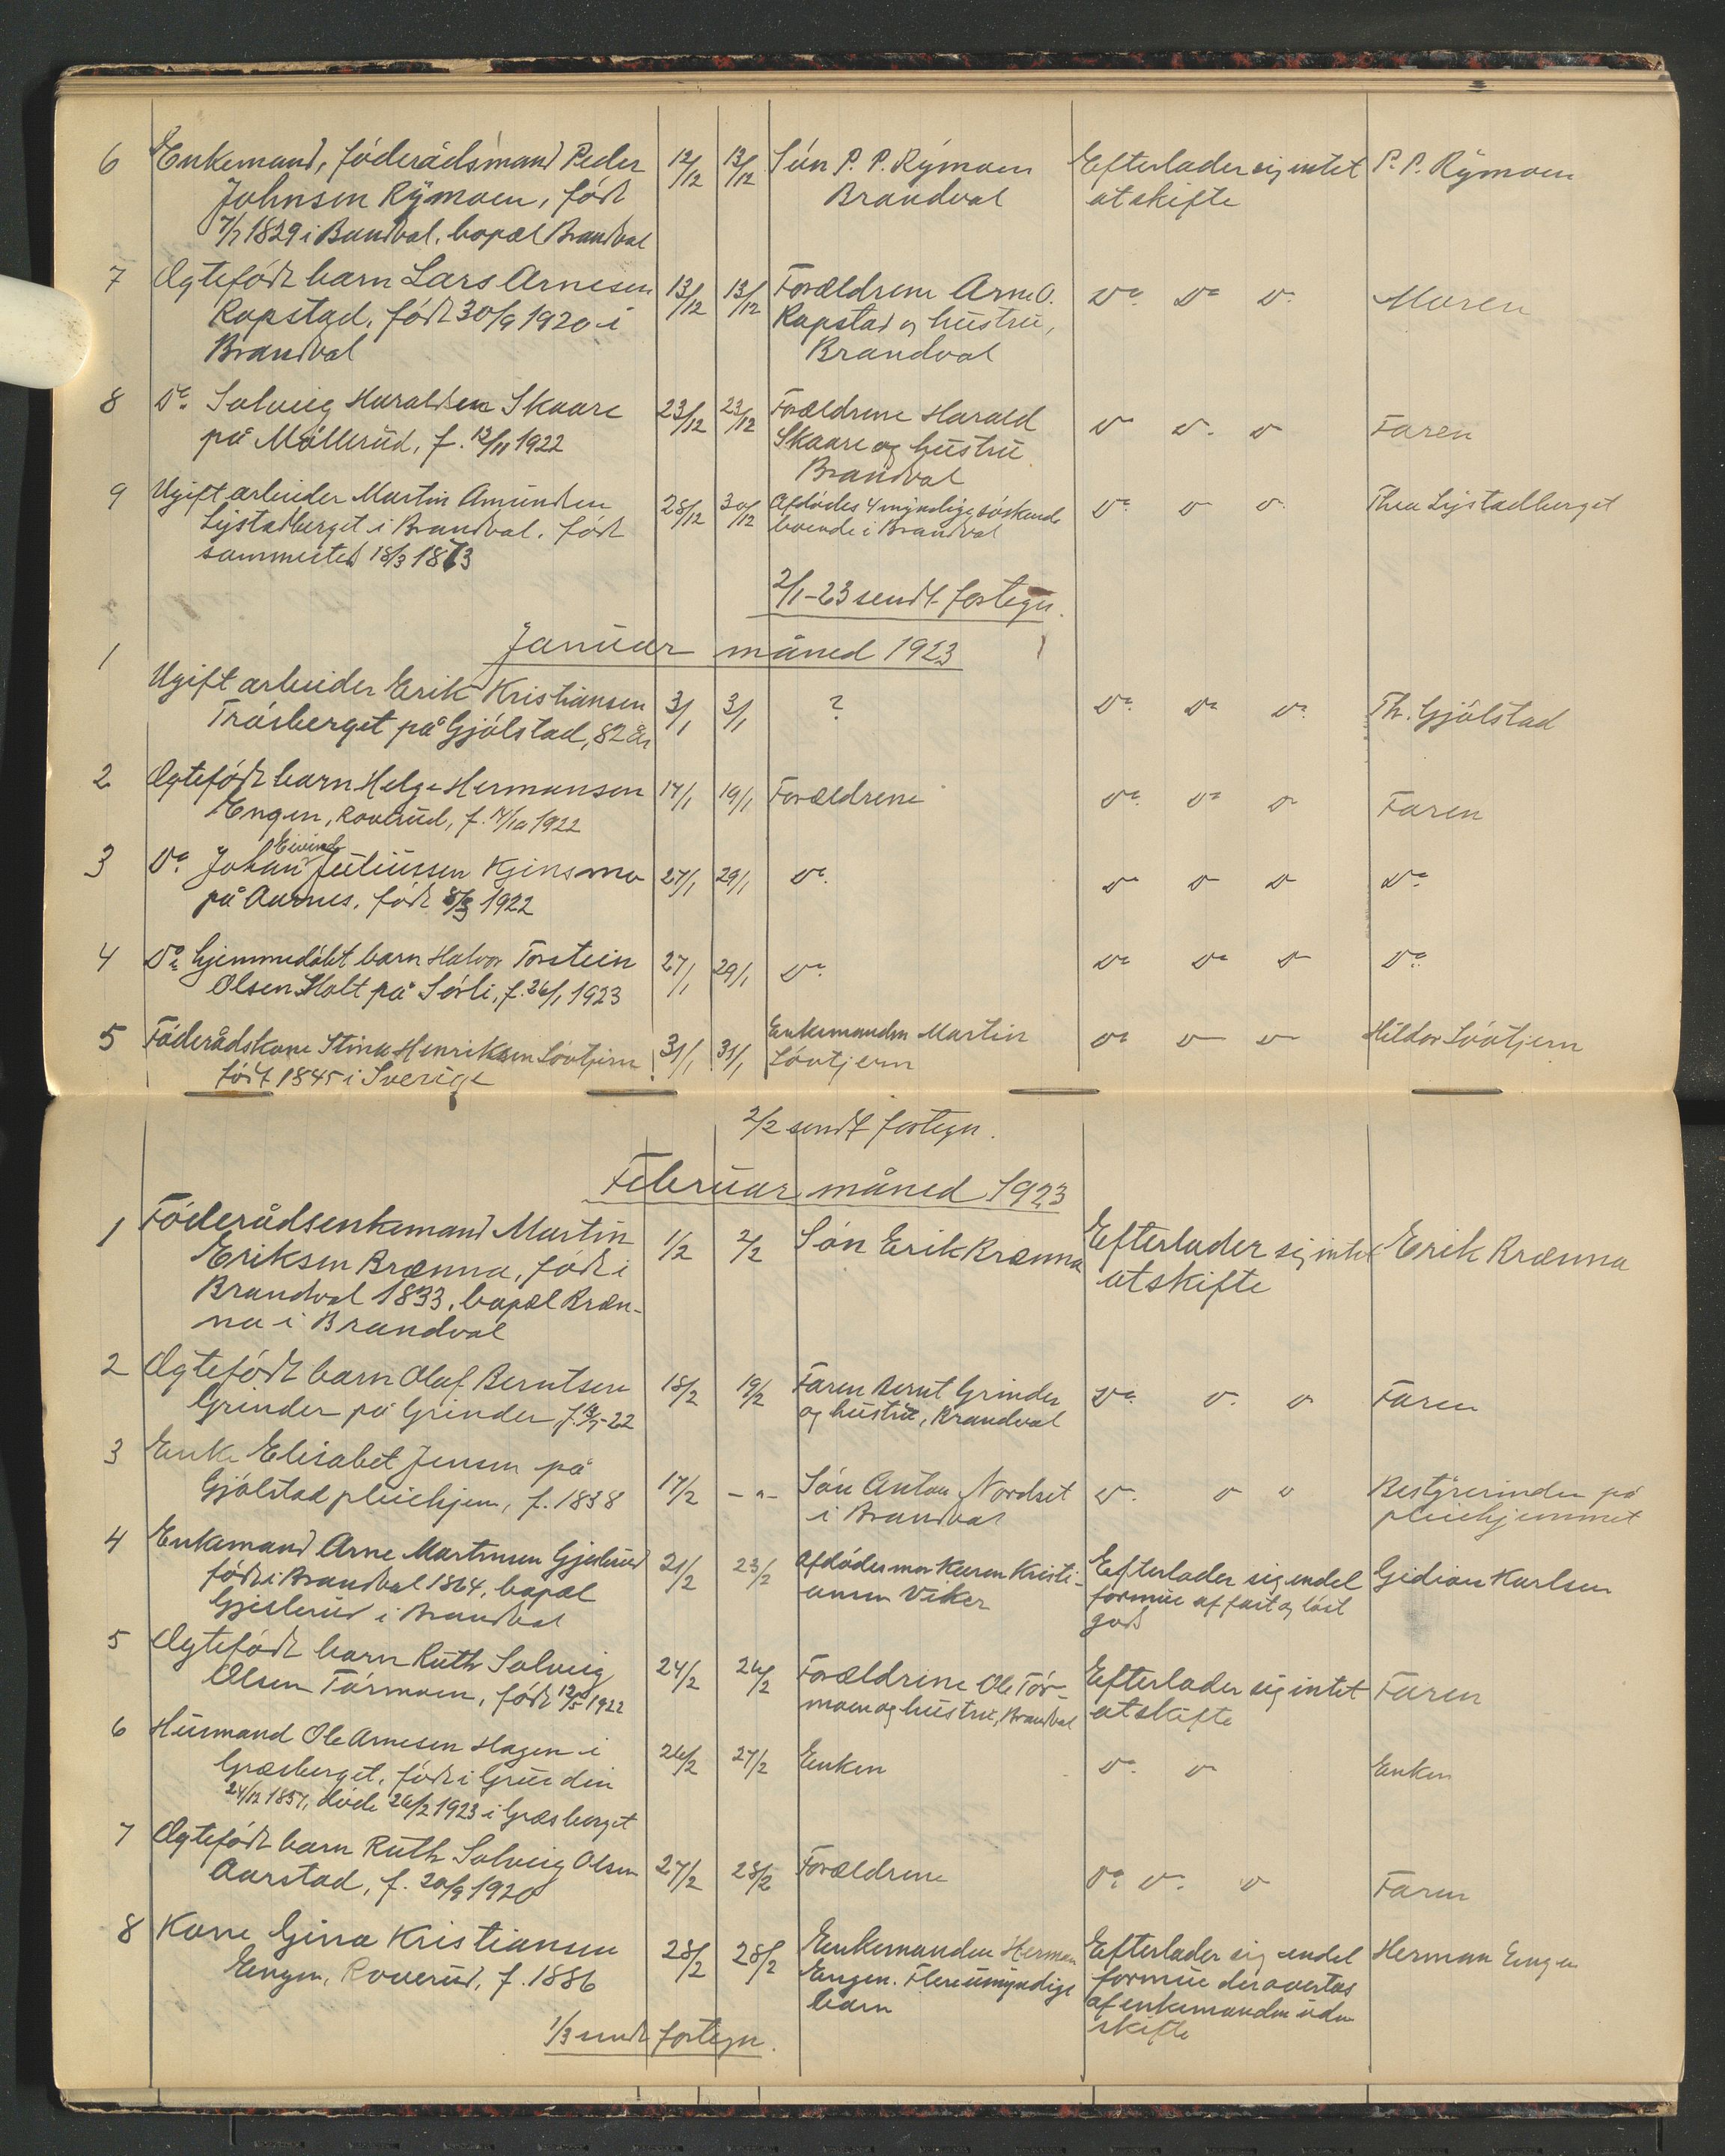 6 Enkemand, föderådsmand Peder 12/12 13/12 Sön P. P. Rymoen Efterlader sig intet P. P. Rymoen
Johnsen Rymoen, födt Brandval at skifte
7/7 1829 i Brandval, bopæl Brandval
7 Ægtefödt barn Lars Arnesen 13/12 13/12 Forældrene Arne O. Do Do D. Moren
Rapstad, födt 30/9 1920 i Rapstad og hustru,
Brandval Brandval
8 Do. Solveig Haraldsen Skaare 23/12 23/12 Forældrene Harald D D. D Faren
på Möllerud, f. 12/11 1922 Skaare og hustru
Brandval
9 Ugift arbeider Martin Amundsen 28/12 30/12 Afdödes 4 myndige söskende Do. D D. Thea Lystadberget
Lystadberget i Brandval, födt boende i Brandval
sammested 18/3 1873
2/1-23 sendt fortegn.
Januar måned 1923
1 Ugift arbeider Erik Kristiansen 3/1 3/1 ? Do. Do Do. Th. Gjölstad
Tråsberget på Gjölstad, 82 år
2 Ægtefödt barn Helge Hermansen 17/1 19/1 Forældrene Do. Do D Faren
Engen, Roverud, f. 14/10 1922
3 Do Johan Eivind Juliussen Kjinsmo 27/1 29/1 Do. Do D D Do
på Aarnes, födt 1922
4 Do hjemmedöbt barn Halvor Torstein 27/1 29/1 Do Do Do D Do
Olsen Holt på Sörli, f. 26/1 1923
5 Föderådskone Stina Henriksen Lövtjern 31/1 31/1 Enkemanden Martin Do D D Hildor Lövtjern
födt 1845 i Sverige Lövtjern
2/2 sendt fortegn.
Februar måned 1923
1 Föderådsenkemand Martin 1/2 2/2 Sön Erik Brænna Efterlader sig intet Erik Brænna
Eriksen Brænna, födt i at skifte
Brandval 1833, bopæl Bræn-
na i Brandval
2 Ægtefödt barn Olaf Berntsen 18/2 19/2 Faren Bernt Grinder Do. D. D Faren
Grinder på Grinder f. -22 og hustru, Brandval
3 Enke Elisabet Jensen på 17/2 -"- Sön Anton Nordset D. D D Bestyrerinden på
Gjölstad pleiehjem, f. 1838 i Brandval pleiehjemmet
4 Enkemand Arne Martinsen Gjeslerud 21/2 23/2 Afdödes mor Karen Kristi- Efterlader sig endel Gidion Karlsen
födt i Brandval 1864, bopæl ansen Viker formue af fast og löst
Gjeslerud i Brandval gods
5 Ægtefödt barn Ruth Solveig 24/2 26/2 Forældrene Ole Tör- Efterlader sig intet Faren
Olsen Törmoen, födt 12/5 1922 moen og hustru, Brandval at skifte
6 Husmand Ole Arnesen Hagen i 26/2 27/2 Enken Do. D Enken
Græsberget, födt i Grue den
24/12 1857, döde 26/2 1923 i Græsberget
7 Ægtefödt barn Ruth Solveig Olsen 27/2 28/2 Forældrene Do D. D Faren
Aarstad, f. 20/9 1920
8 Kone Gina Kristiansen 28/2 28/2 Enkemanden Herman Efterlader sig endel Herman Engen
Engen, Roverud, f. 1886 Engen. Flere umyndige formue der overtas
barn af enkemanden uden
skifte
1/3 sendt fortegn.